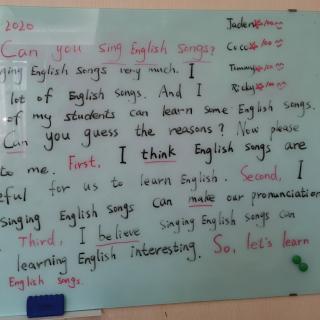 2020
Jaden 100
Can you sing English songs?
Coco 100
ging English songs very much. I
Timmy 100
lot of English songs. And I
Ricky 100
of my students can learn some English songs.
Can you guess the reasons? Now please
to me. First, I think English songs are
eful for us to learn English. Second, I
singing English songs can make our pronunciation
Third, I believe singing English songs can
learning English interesting. So, let's learn
English songs.